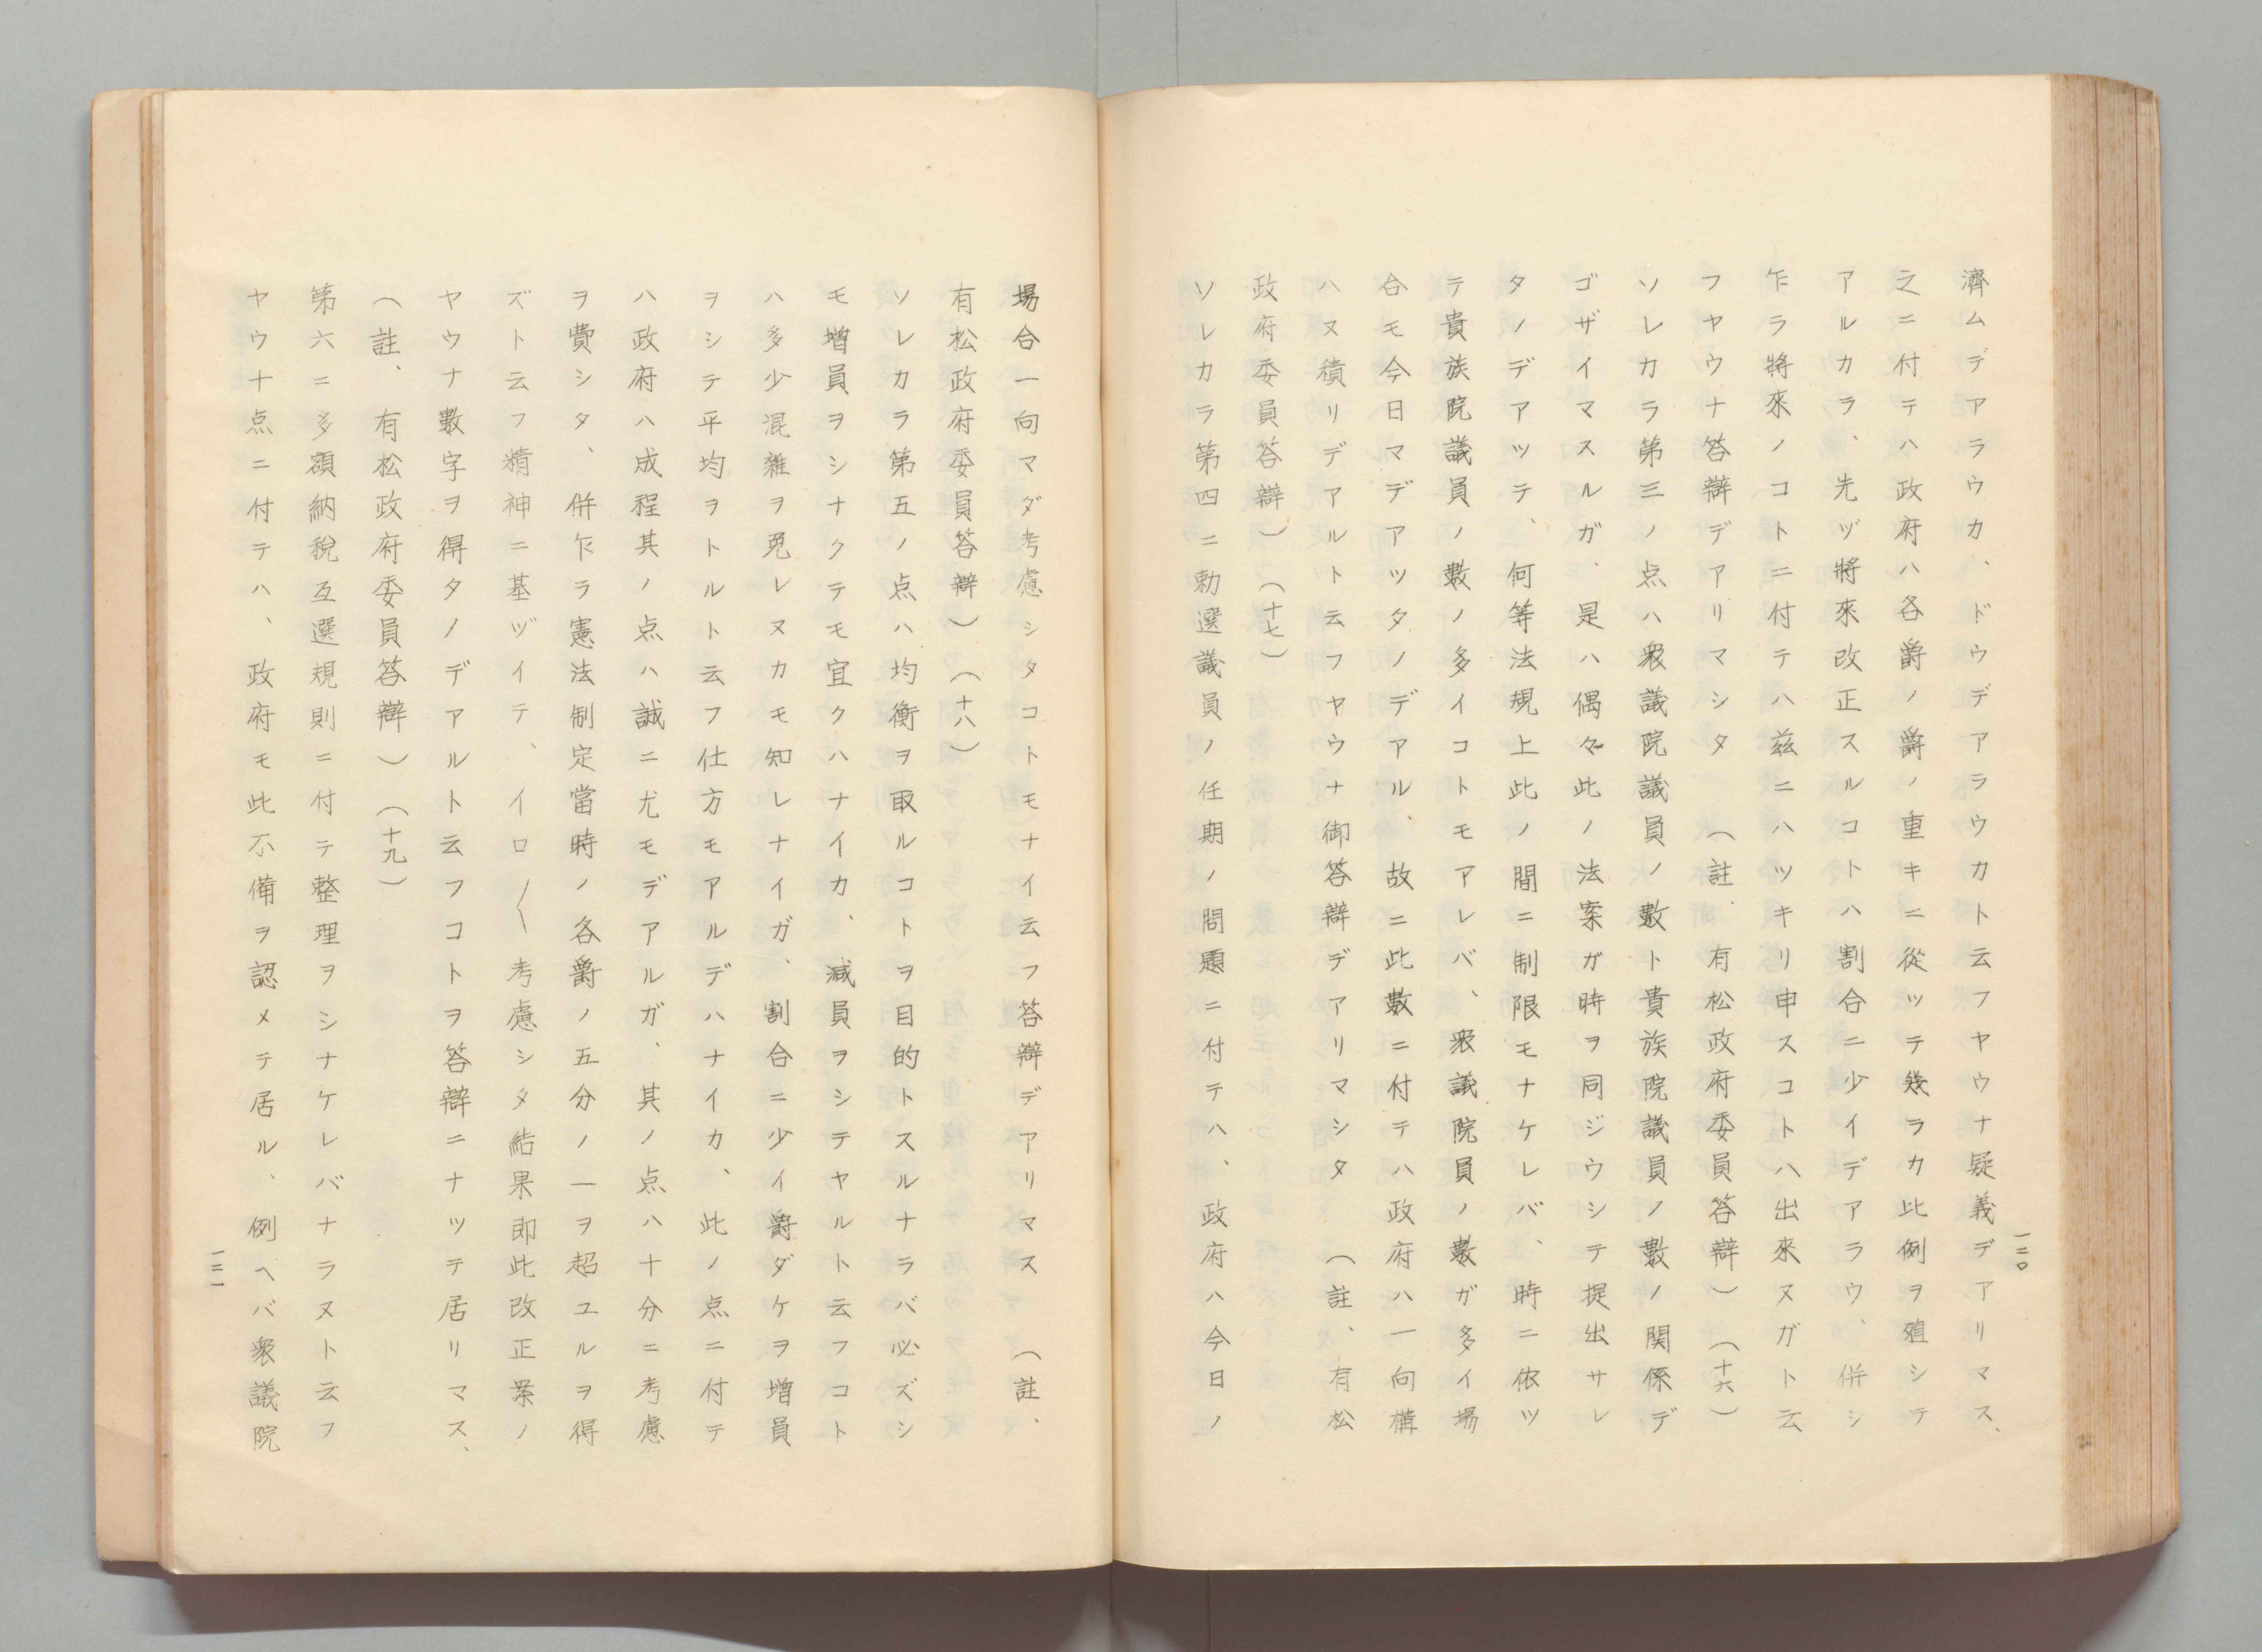 濟ムデアラウカ、ドウデアラウカト云フヤウナ疑義デアリマス、
之ニ付テハ政府ハ各爵ノ爵ノ重キニ從ツテ幾ラカ比例ヲ殖シテ
アルカラ、先ヅ將來改正スルコトハ割合ニ少イデアラウ、併シ
乍ラ將來ノコトニ付テハ茲ニハツキリ申スコトハ出來ヌガト云
フヤウナ答辯デアリマシタ（註、有松政府委員答辯）（十六）
ソレカラ第三ノ点ハ衆議院議員ノ數ト貴族院議員ノ數ノ関係デ
ゴザイマスルガ、是ハ偶々此ノ法案ガ時ヲ同ジウシテ提出サレ
タノデアツテ、何等法規上此ノ間ニ制限モナケレバ、時ニ依ツ
テ貴族院議員ノ數ノ多イコトモアレバ、衆議院員ノ數ガ多イ場
合モ今日マデアツタノデアル、故ニ此數ニ付テハ政府ハ一向構
ハヌ積リデアルト云フヤウナ御答辯デアリマシタ（註、有松
政府委員答辯）（十七）
ソレカラ第四ニ勅選議員ノ任期ノ問題ニ付テハ、政府ハ今日ノ
一二〇
場合一向マダ考慮シタコトモナイ云フ答辯デアリマス（註、
有松政府委員答辯）（十八）
ソレカラ第五ノ点ハ均衡ヲ取ルコトヲ目的トスルナラバ必ズシ
モ增員ヲシナクテモ宜クハナイカ、減員ヲシテヤルト云フコト
ハ多少混雜ヲ免レヌカモ知レナイガ、割合ニ少イ爵ダケヲ增員
ヲシテ平均ヲトルト云フ仕方モアルデハナイカ、此ノ点ニ付テ
ハ政府ハ成程其ノ点ハ誠ニ尤モデアルガ、其ノ点ハ十分ニ考慮
ヲ費シタ、併乍ラ憲法制定當時ノ各爵ノ五分ノ一ヲ超ユルヲ得
ズト云フ精神ニ基ヅイテ、イロ〳〵考慮シタ結果即此改正案ノ
ヤウナ數字ヲ得タノデアルト云フコトヲ答辯ニナツテ居リマス、
（註、有松政府委員答辯）（十九）
第六ニ多額納税互選規則ニ付テ整理ヲシナケレバナラヌト云フ
ヤウナ点ニ付テハ、政府モ此不備ヲ認メテ居ル、例ヘバ衆議院
一二一